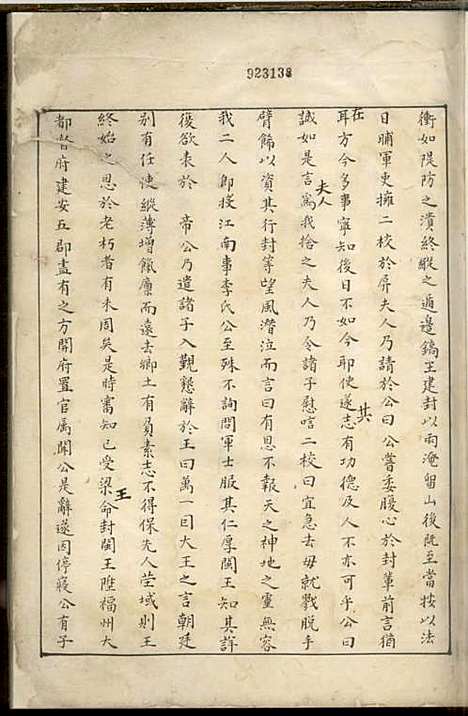 923138
衝如隄防之潰終縱之遁邊鎬王建封以雨淹留山後既至當按以法
日晡軍吏擁二校於屏夫人乃請於公曰公嘗委腹心於封輩前言猶
在耳方今多事寧知後日不如今耶使遂志有功德及人不亦可乎公曰
誠如是言為我捨之夫人乃令諸子慰唁二校曰宜急去毋就戮脫手
臂飾以資其行封等望風潛泣而言曰有恩不報天之神地之靈無容
我二人即投江南事李氏公至殊不詢問軍士服其仁厚閩王知其詳
復欲表於 帝公乃遣諸子入覲懇辭於王曰萬一回大王之言朝廷
別有任使縱薄增餼廩而遠去鄉土有負素志不得保先人塋域則王
終始之恩於老朽者有未周矣是時審知已受梁命封閩王陞福州大
都督府建安五郡盡有之方開府置官屬聞公是辭遂因停寢公有子
夫人
其
王